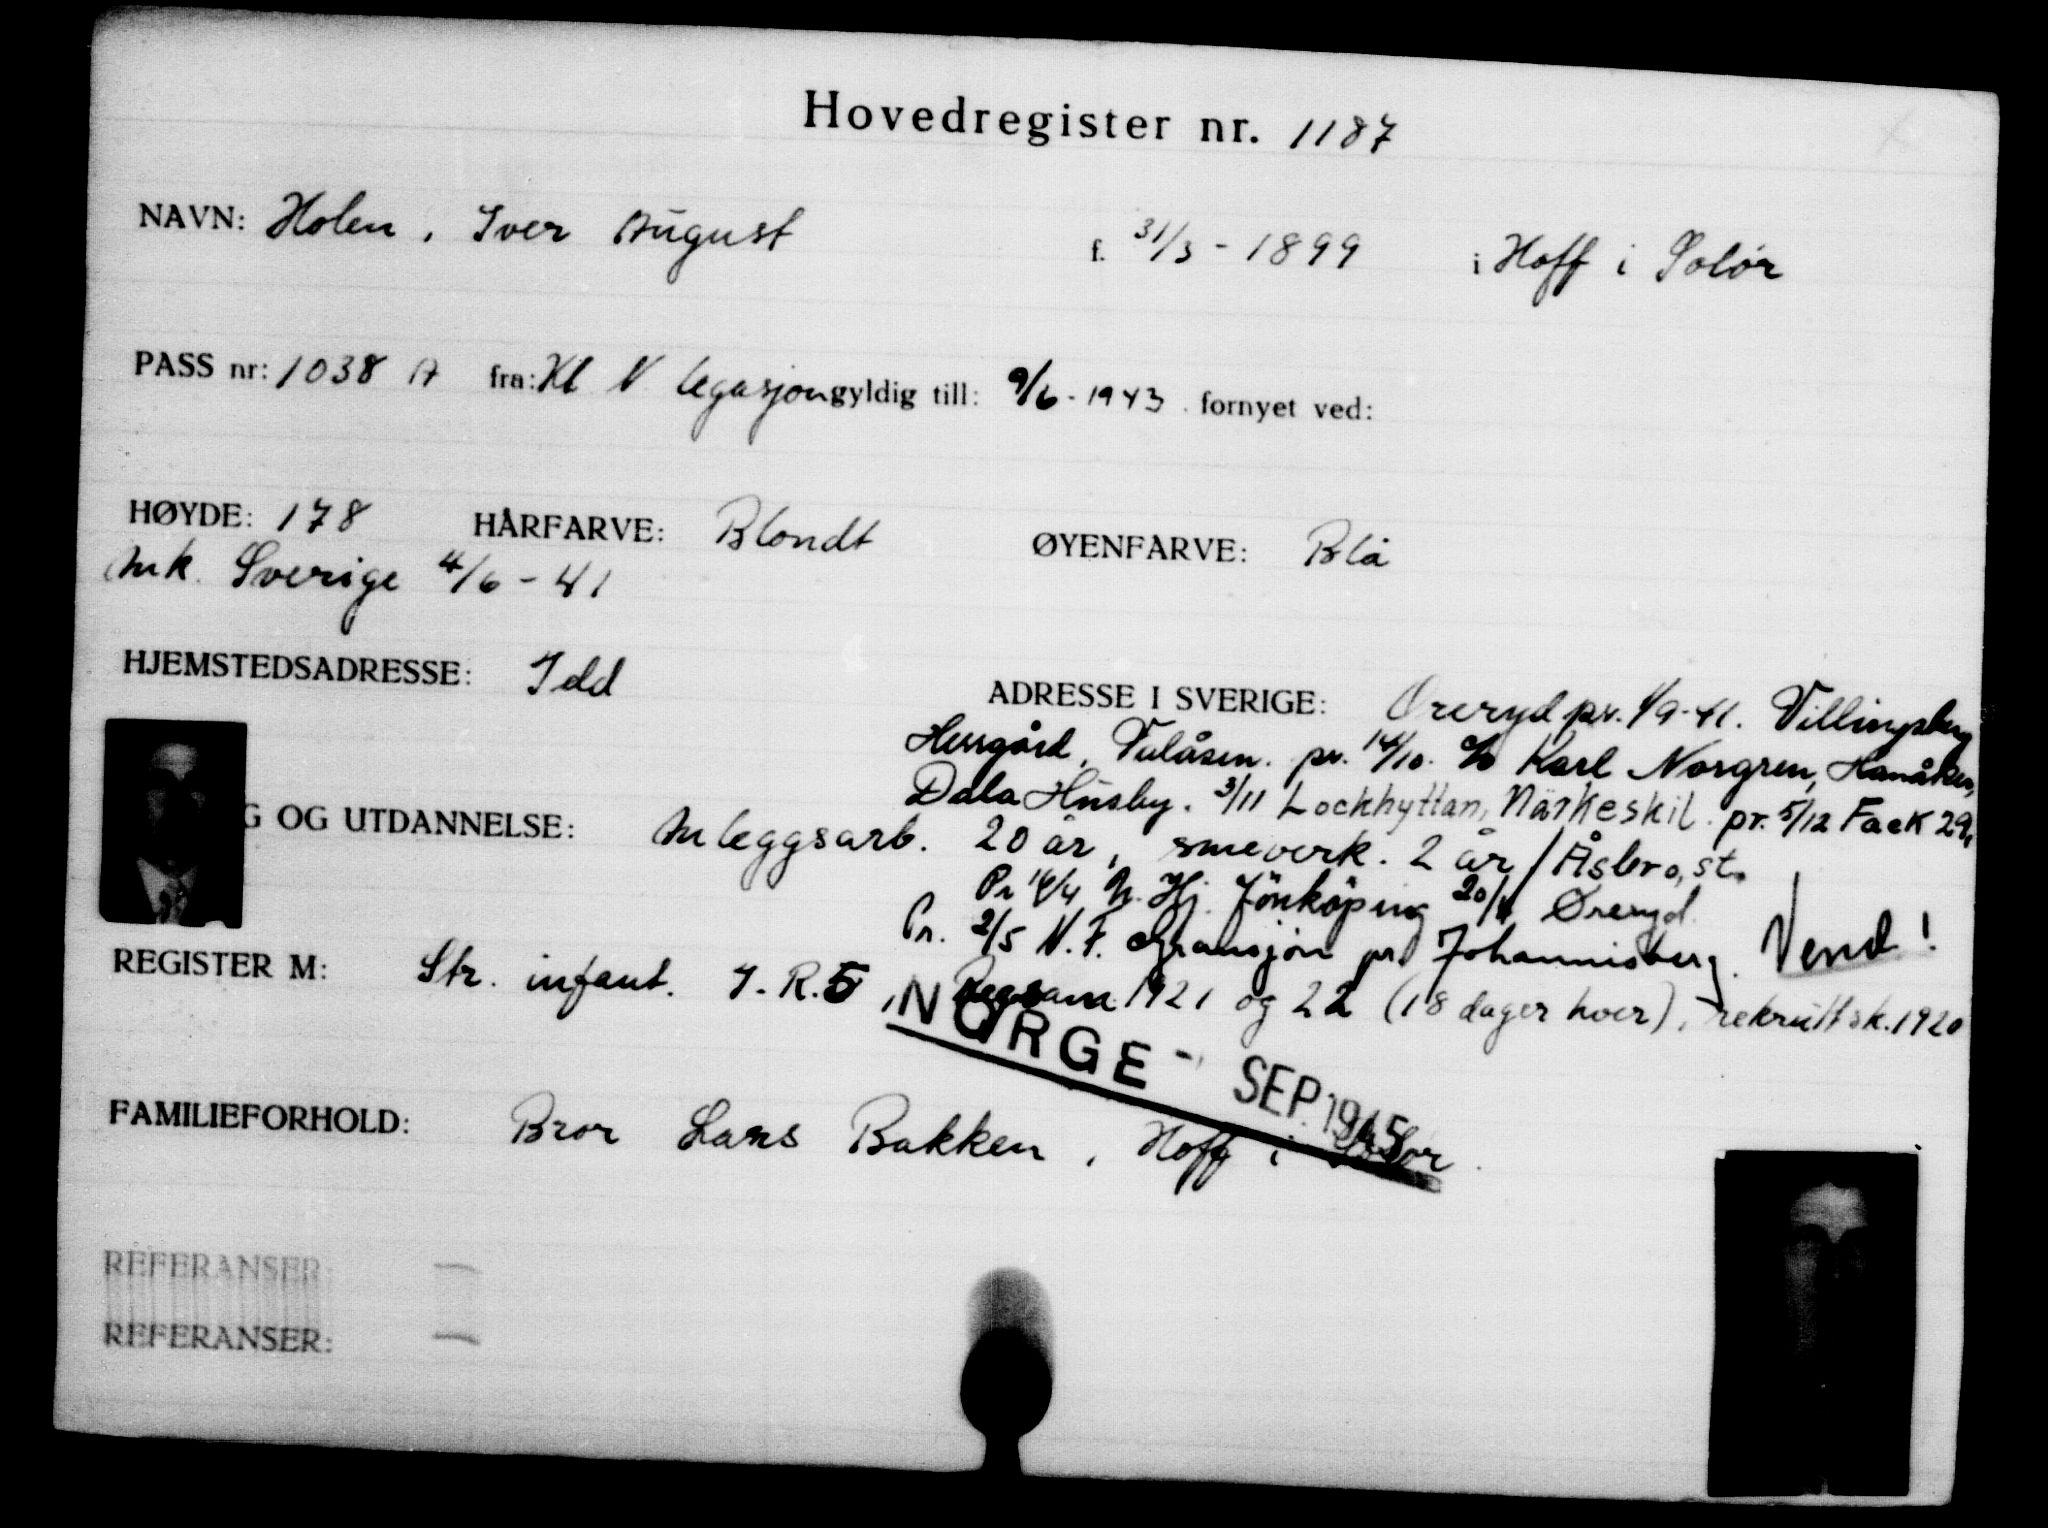 Hovedregister nr. 1187
NAVN: Holen, Iver August f. 31/3 - 1899 i Hoff i Solør
PASS nr: 1038 A fra: Kl N legasjon gyldig till: 9/6 - 1943 fornyet ved:
HØYDE: 178 HÅRFARVE: Blondt ØYENFARVE: Blå
Ank. Sverige 4/6 - 41
HJEMSTEDSADRESSE: Idd ADRESSE I SVERIGE: Öreryd pr. 1/9-41. Villingsberg
Herrgård, Valåsen. pr. 14/10. c/o Karl Norgren, Hanåker,
Dala Husby. 3/11 Lockhyttan, Närkeskil. pr. 5/12 Fack 29,
G OG UTDANNELSE: Anleggsarb. 20 år, smeverk. 2 år / Åsbro, st.
Pr 14/4 N. Hj. Jönköping 20/4 Øreryd.
Pr. 2/5 N. F. Gransjön pr. Johannisberg. Vend!
REGISTER M: Str. infant. I.R.5, Regsam. 1921 og 22 (18 dager hver), rekruttsk. 1920
NORGE - SEP. 1945
FAMILIEFORHOLD: Bror Lars Bakken, Hoff i Solør.
REFERANSER: —
REFERANSER: —